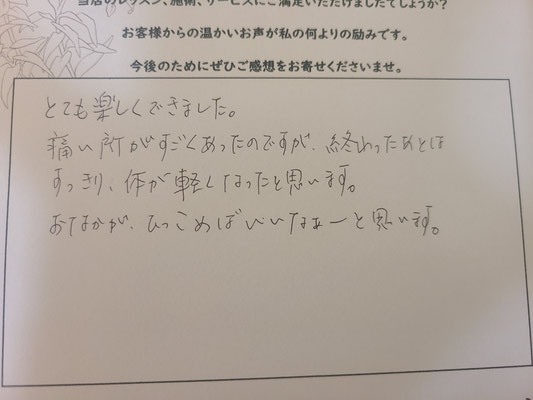 当店のレッスン、施術、サービスにご満足いただけましたでしょうか?
お客様からの温かいお声が私の何よりの励みです。
今後のためにぜひご感想をお寄せくださいませ。
とても楽しくできました。
痛い所がすごくあったのですが、終わったあとは
すっきり、体が軽くなったと思います。
おなかが、ひっこめばいいなぁーと思います。